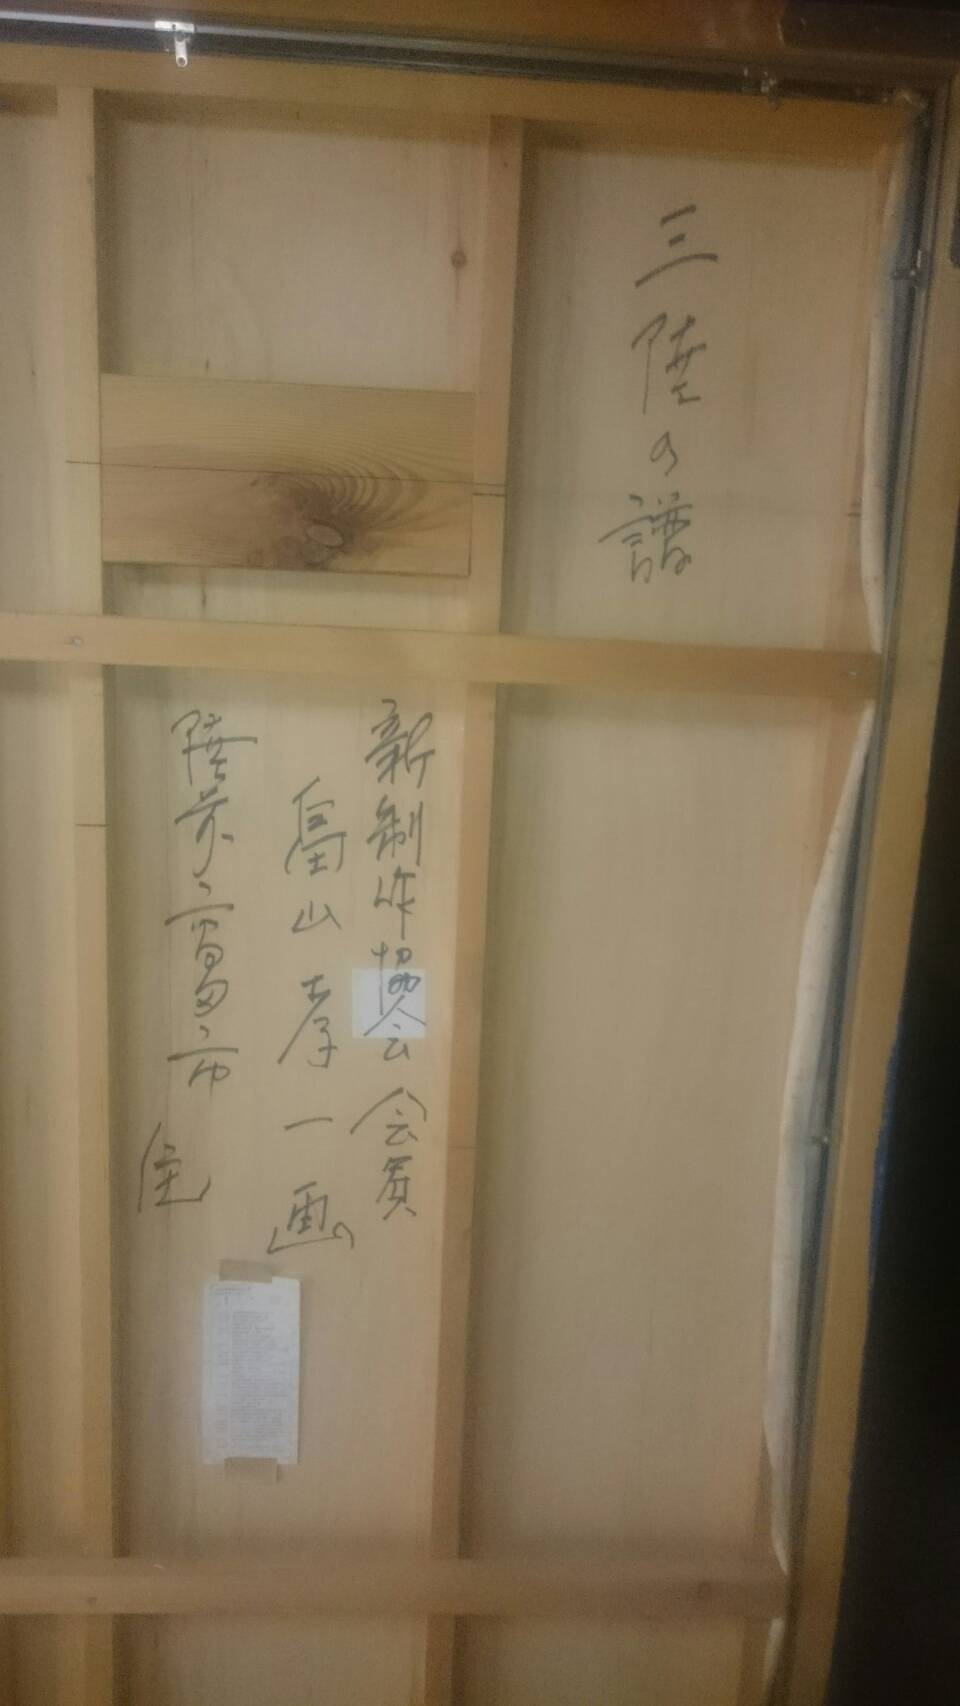 三陸の譜
新制作協会会員
畠山孝一画
陸前高田市
住